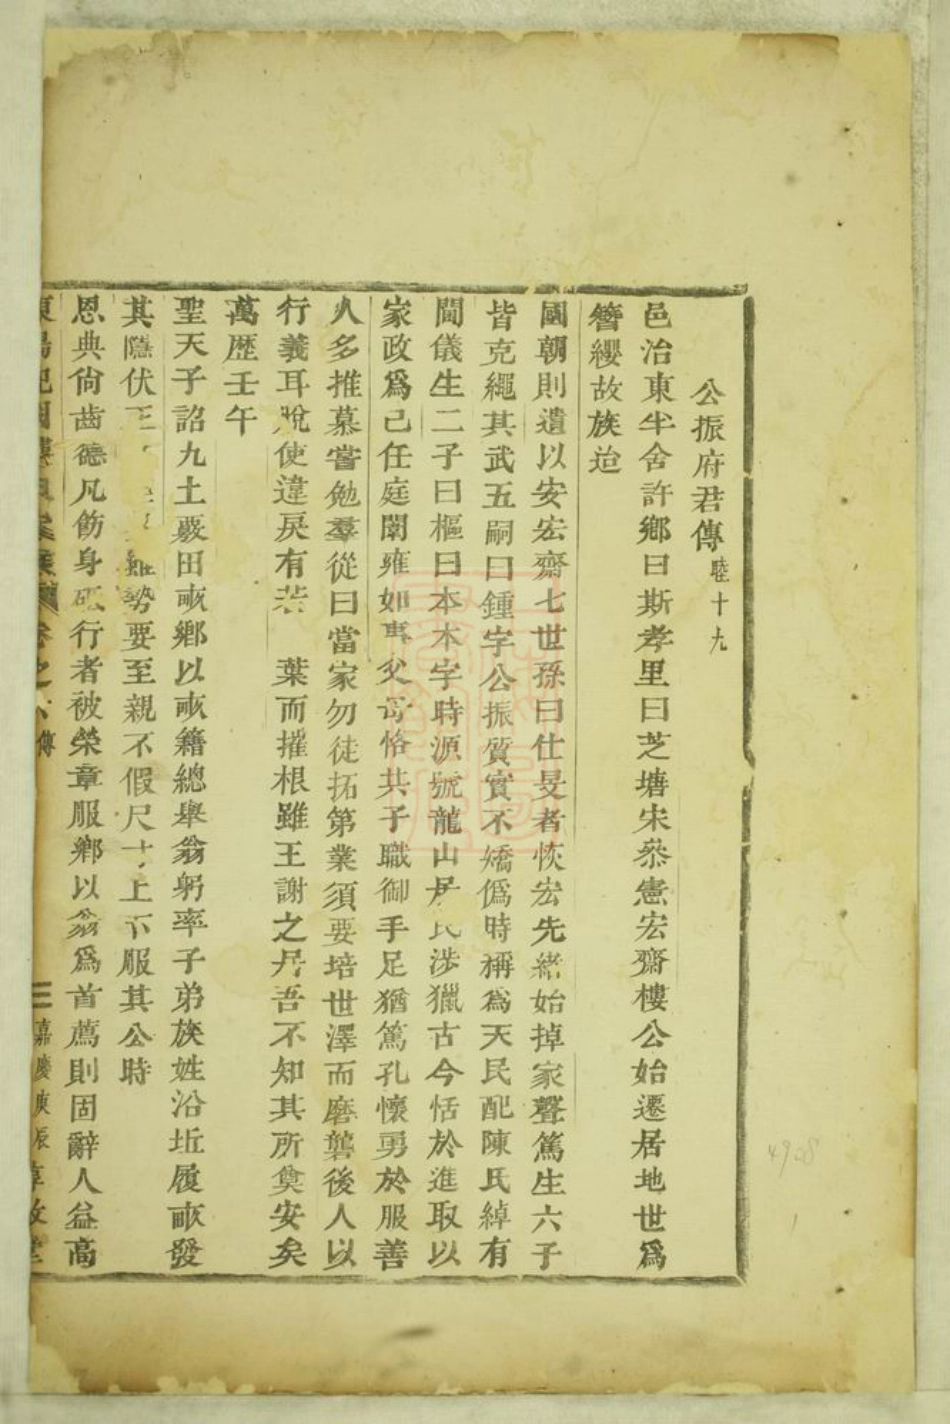 公振府君傳 睦十九
邑治東半舍許鄉曰斯孝里曰芝塘宋叅憲宏齋樓公始遷居地世爲
簪纓故族迨
國朝則遺以安宏齋七世孫曰仕旻者恢宏先緒始掉家聲篤生六子
皆克繩其武五嗣曰鍾字公振質實不矯僞時稱爲天民配陳氏綽有
閫儀生二子曰樞曰本本字時源號龍山居民涉獵古今恬於進取以
家政爲己任庭闈雍如事父哥恪共子職御手足猶篤孔懷勇於服善
人多推慕嘗勉羣從曰當家勿徒拓第業須要培世澤而磨礱後人以
行義耳脫使違戾有若 葉而摧根雖王謝之居吾不知其所奠安矣
萬歷壬午
聖天子詔九土覈田畝鄉以畝籍總舉翁躬率子弟族姓沿坵履畝發
其隱伏正 雖勢要至親不假尺寸上下服其公時
恩典尙齒德凡飭身砥行者被榮章服鄉以翁爲首薦則固辭人益高
卷之 傳 三 嘉慶庚辰